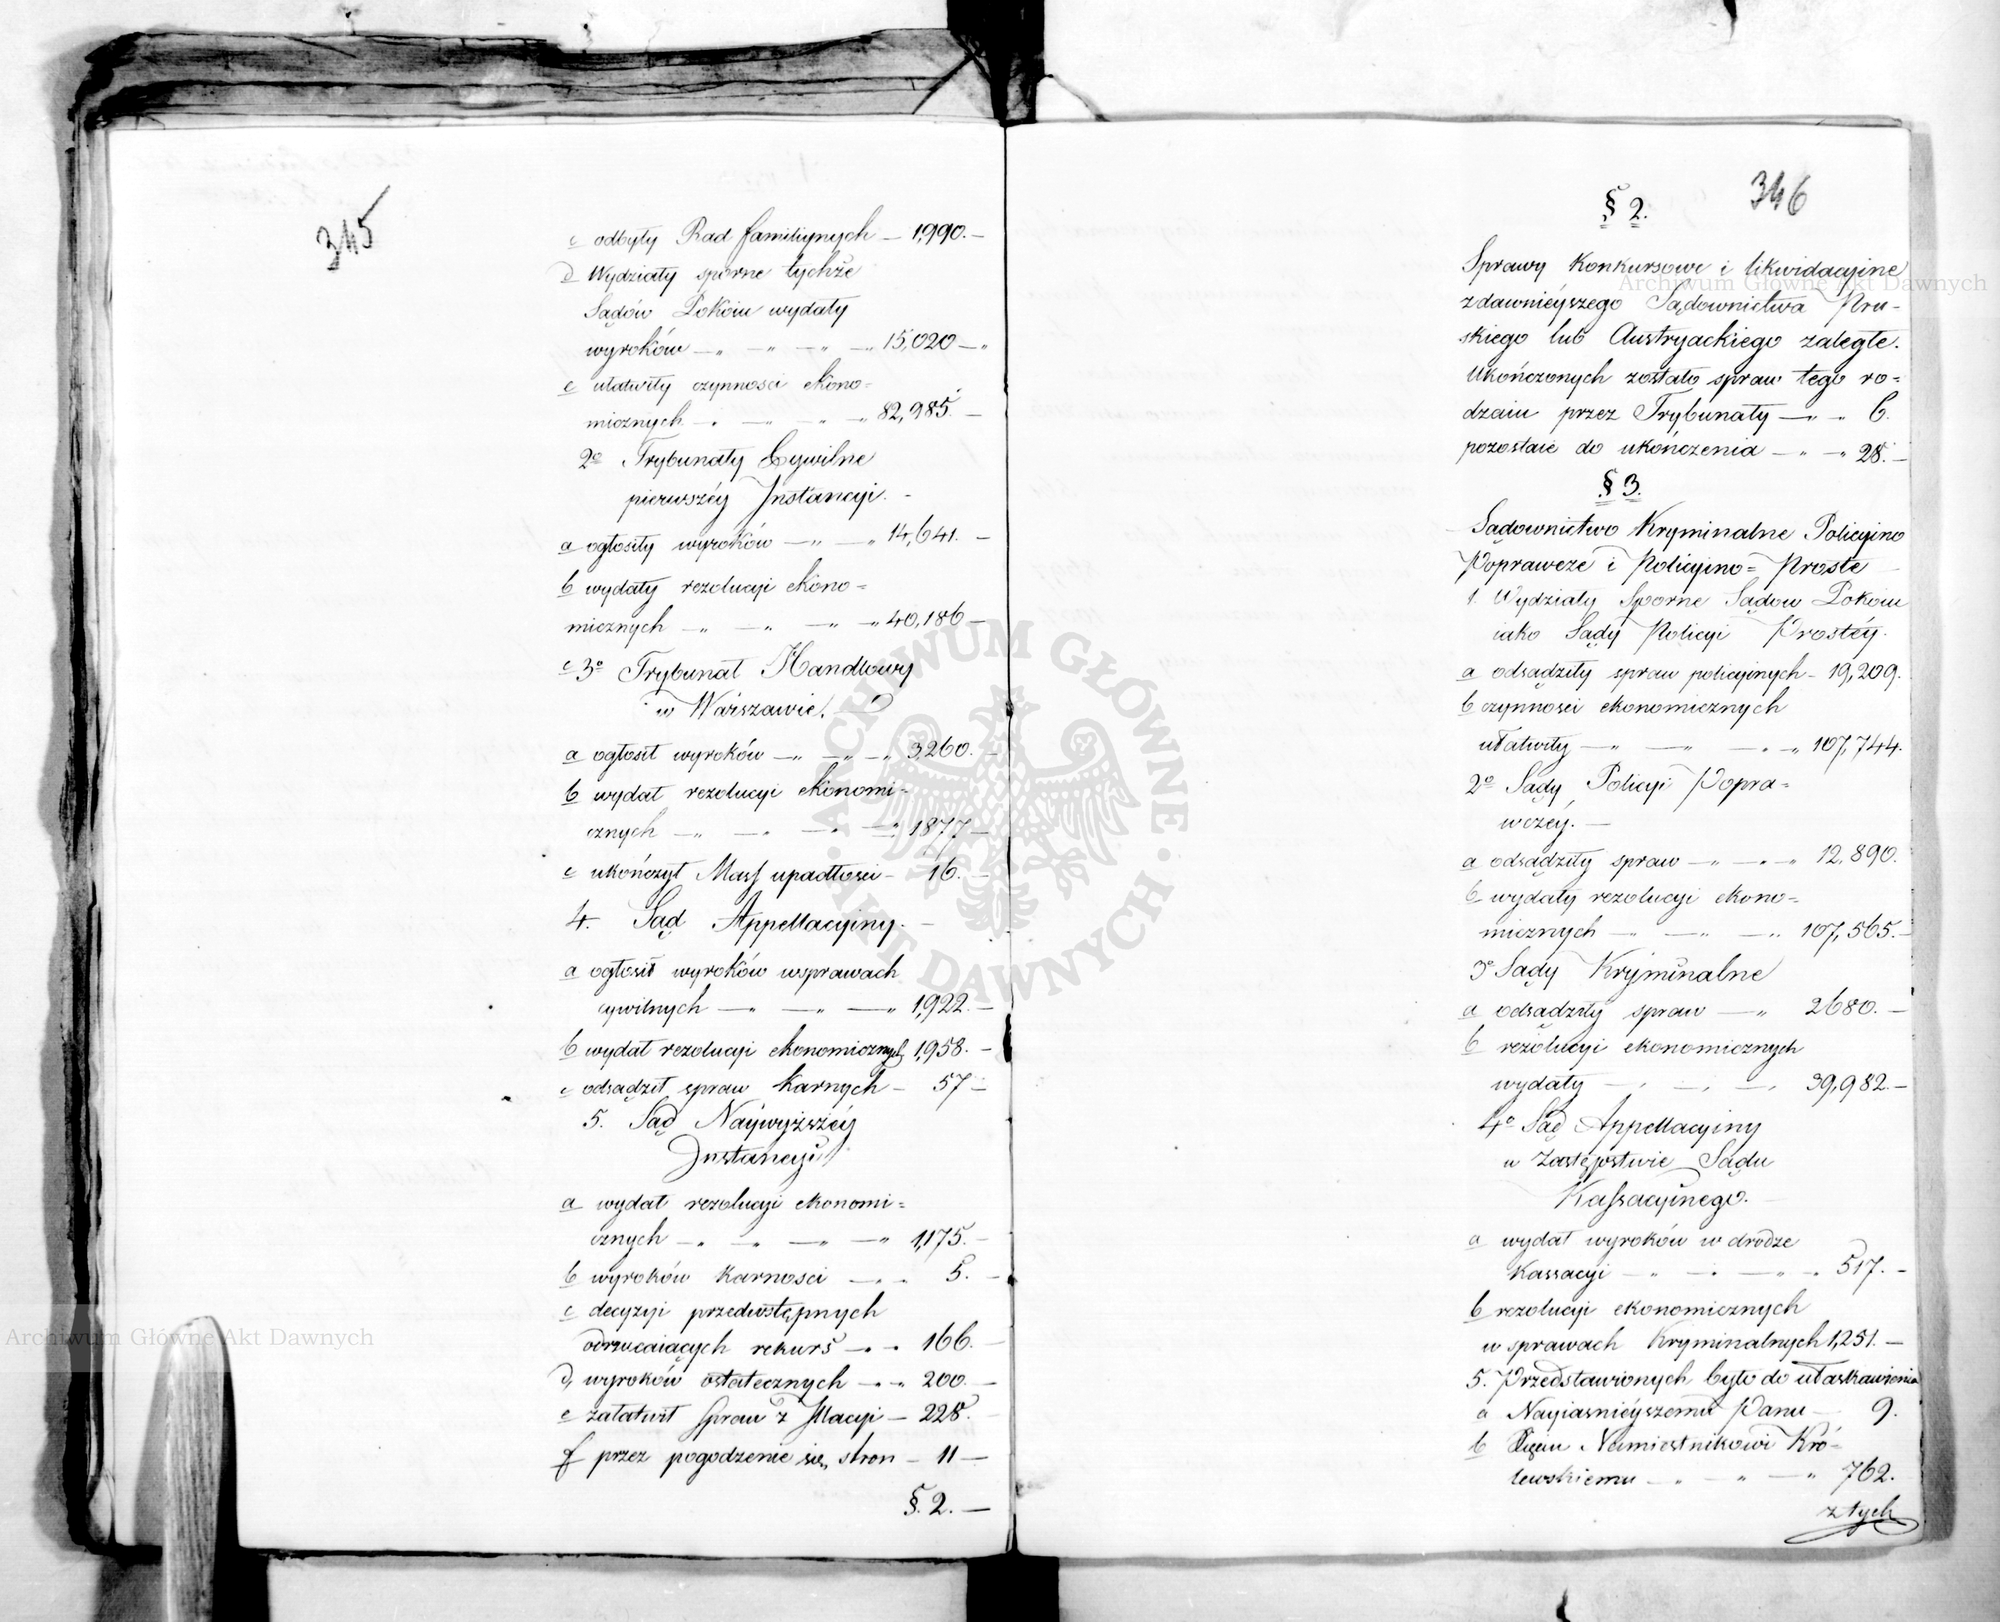 345
c odbyły Rad familiynych — 1,990. —
d Wydziały sporne tychże
Sądów Pokoiu wydały
wyroków — „ — „ — „ — „ 15,020 — „
e ułatwiły czynności ekono=
micznych — „ — „ — „ 82,985. —
2o Trybunały Cywilne
pierwszéy Instancyi. -
a ogłosiły wyroków — „ — „ 14,641. —
b wydały rezolucyi ekono=
micznych — „ — „ — „ 40,186 —
c 3o Trybunał Handlowy
w Warszawie.
a ogłosił wyroków — „ — „ — „ 3,260. —
b wydał rezolucyi ekonomi=
cznych — „ — „ — „ — „ 1877 —
c ukończył Mass upadłości — 16. —
4. Sąd Appellacyiny. —
a ogłosił wyroków wsprawach
cywilnych — „ — „ — „ 1,922. —
b wydał rezolucyi ekonomicznych 1,958. —
c odsądził spraw karnych — 57 —
5. Sąd Naywyższéy
Instancyi
a wydał rezolucyi ekonomi=
cznych — „ — „ — „ — „ 1,175. —
b wyroków karności — „ — „ 5. —
c decyzyi przedwstępnych
odrzucaiących rekurs — „ — „ 166. —
d, wyroków ostatecznych — „ — „ 200. —
e załatwił spraw z Illacyi — 228. —
f przez pogodzenie się stron — 11 —
§. 2. —
346
§ 2.
Sprawy Konkursowe i likwidacyine
z dawnieyszego Sądownictwa Pru-
skiego lub Austryackiego zaległe.
Ukończonych zostało spraw tego ro=
dzaiu przez Trybunały — „ — „ 6.
pozostaie do ukończenia — „ — „ 28. —
§ 3.
Sądownictwo Kryminalne Policyino
Poprawcze i Policyino= Proste
1. Wydziały Sporne Sądów Pokoiu
iako Sądy Policyi Prostéy.
a odsądziły spraw policyinych — 19,209.
b czynności ekonomicznych
ułatwiły — „ — „ — „ 107,744.
2o Sądy Policyi Popra=
wczéy. —
a odsądziły spraw — „ — „ — „ 12,890.
b wydały rezolucyi ekono=
micznych — „ — „ — „ 107,565. —
3o Sądy Kryminalne
a odsądziły spraw — „ 2680. —
b rezolucyi ekonomicznych
wydały — „ — „ — „ 39,982. —
4o Sąd Appellacyiny
w Zastępstwie Sądu
Kassacyinego.
a wydał wyroków w drodze
Kassacyi — „ — „ — „ — „ 517. —
b rezolucyi ekonomicznych
w sprawach Kryminalnych 1,251. —
5. Przedstawionych było do ułaskawienia
a Nayiaśnieyszemu Panu — 9.
b Xięciu Namiestnikowi Kró=
lewskiemu — „ — „ — „ 762.
z tych
Archiwum Główne Akt Dawnych
Archiwum Główne Akt Dawnych
ARCHIWUM GŁÓWNE · AKT DAWNYCH ·